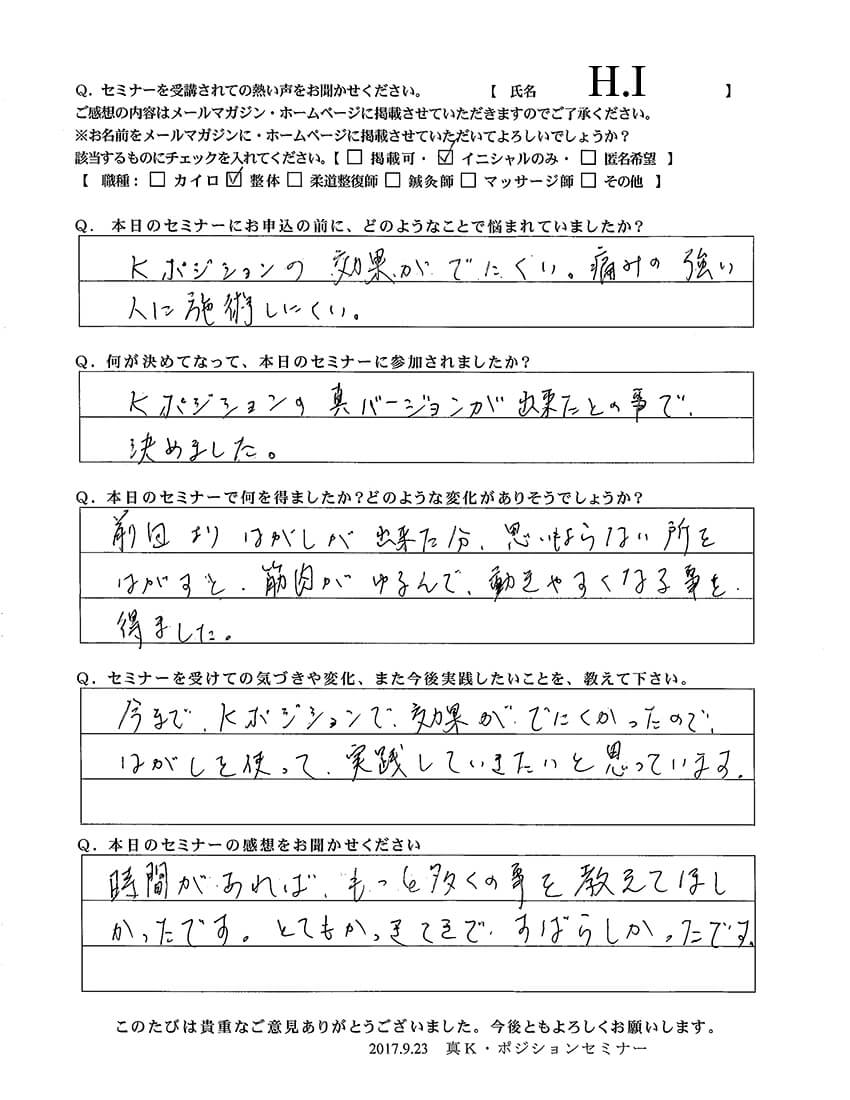 Q．セミナーを受講されての熱い声をお聞かせください。 【 氏名 H.I 】
ご感想の内容はメールマガジン・ホームページに掲載させていただきますのでご了承ください。
※お名前をメールマガジンに・ホームページに掲載させていただいてよろしいでしょうか？
該当するものにチェックを入れてください。【 □ 掲載可・ ☑ イニシャルのみ・ □ 匿名希望 】
【 職種： □ カイロ ☑ 整体 □ 柔道整復師 □ 鍼灸師 □ マッサージ師 □ その他 】
Q． 本日のセミナーにお申込の前に、どのようなことで悩まれていましたか？
Kポジションの 効果が でにくい。痛みの 強い
人に施術しにくい。
Q．何が決めてなって、本日のセミナーに参加されましたか？
Kポジションの 真バージョンが 出来たとの事で、
決めました。
Q．本日のセミナーで何を得ましたか？どのような変化がありそうでしょうか？
前回より はがしが 出来た分、思いもよらない 所を
はがすと、筋肉が ゆるんで、動きやすくなる事を
得ました。
Q．セミナーを受けての気づきや変化、また今後実践したいことを、教えて下さい。
今まで、Kポジションで、効果が でにくかったので、
はがしを使って、実践していきたいと思っています。
Q．本日のセミナーの感想をお聞かせください
時間があれば、もっと多くの事を教えてほし
かったです。とてもかっきてきで、すばらしかったです。
このたびは貴重なご意見ありがとうございました。今後ともよろしくお願いします。
2017.9.23 真K・ポジションセミナー